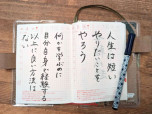 人生は短い
やりたいことを
やろう
何かを学ぶのに
自分自身で経験する
以上に良い方法は
ない